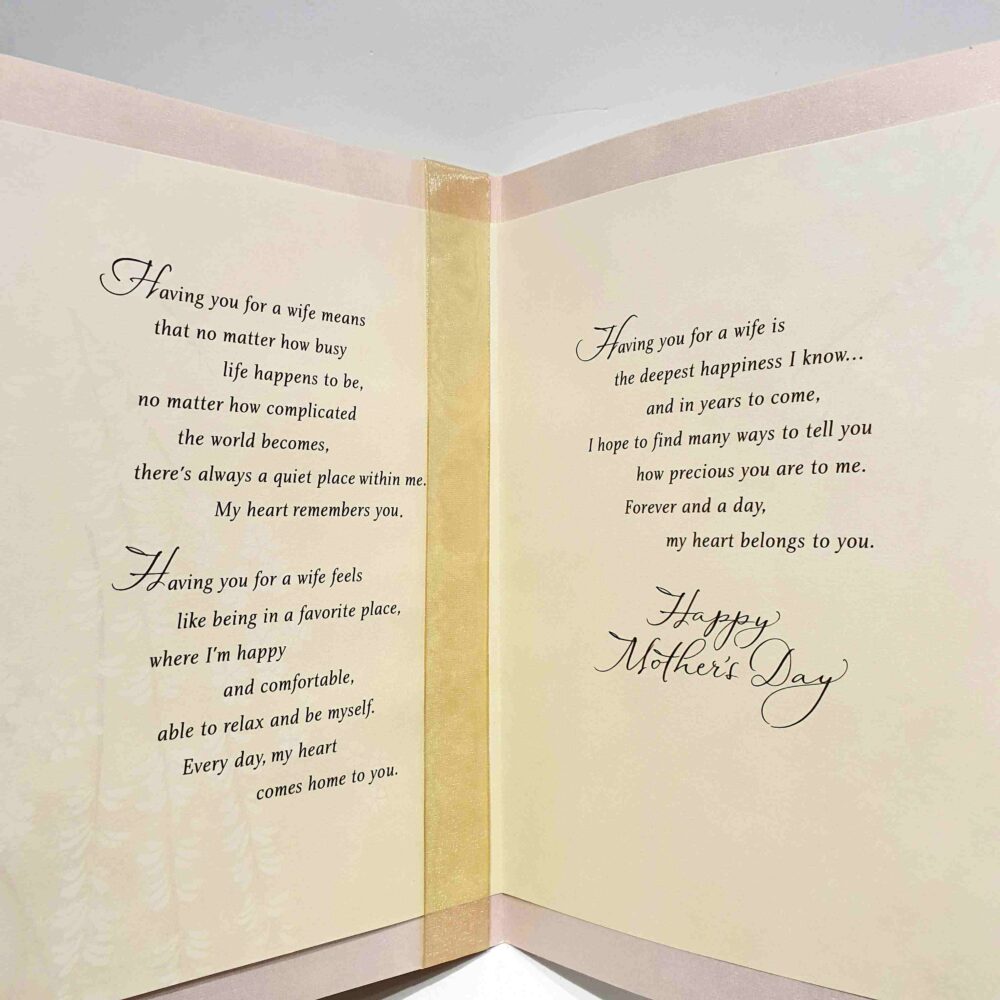 Having you for a wife means
that no matter how busy
life happens to be,
no matter how complicated
the world becomes,
there's always a quiet place within me.
My heart remembers you.
Having you for a wife feels
like being in a favorite place,
where I'm happy
and comfortable,
able to relax and be myself.
Every day, my heart
comes home to you.
Having you for a wife is
the deepest happiness I know...
and in years to come,
I hope to find many ways to tell you
how precious you are to me.
Forever and a day,
my heart belongs to you.
Happy
Mother's Day